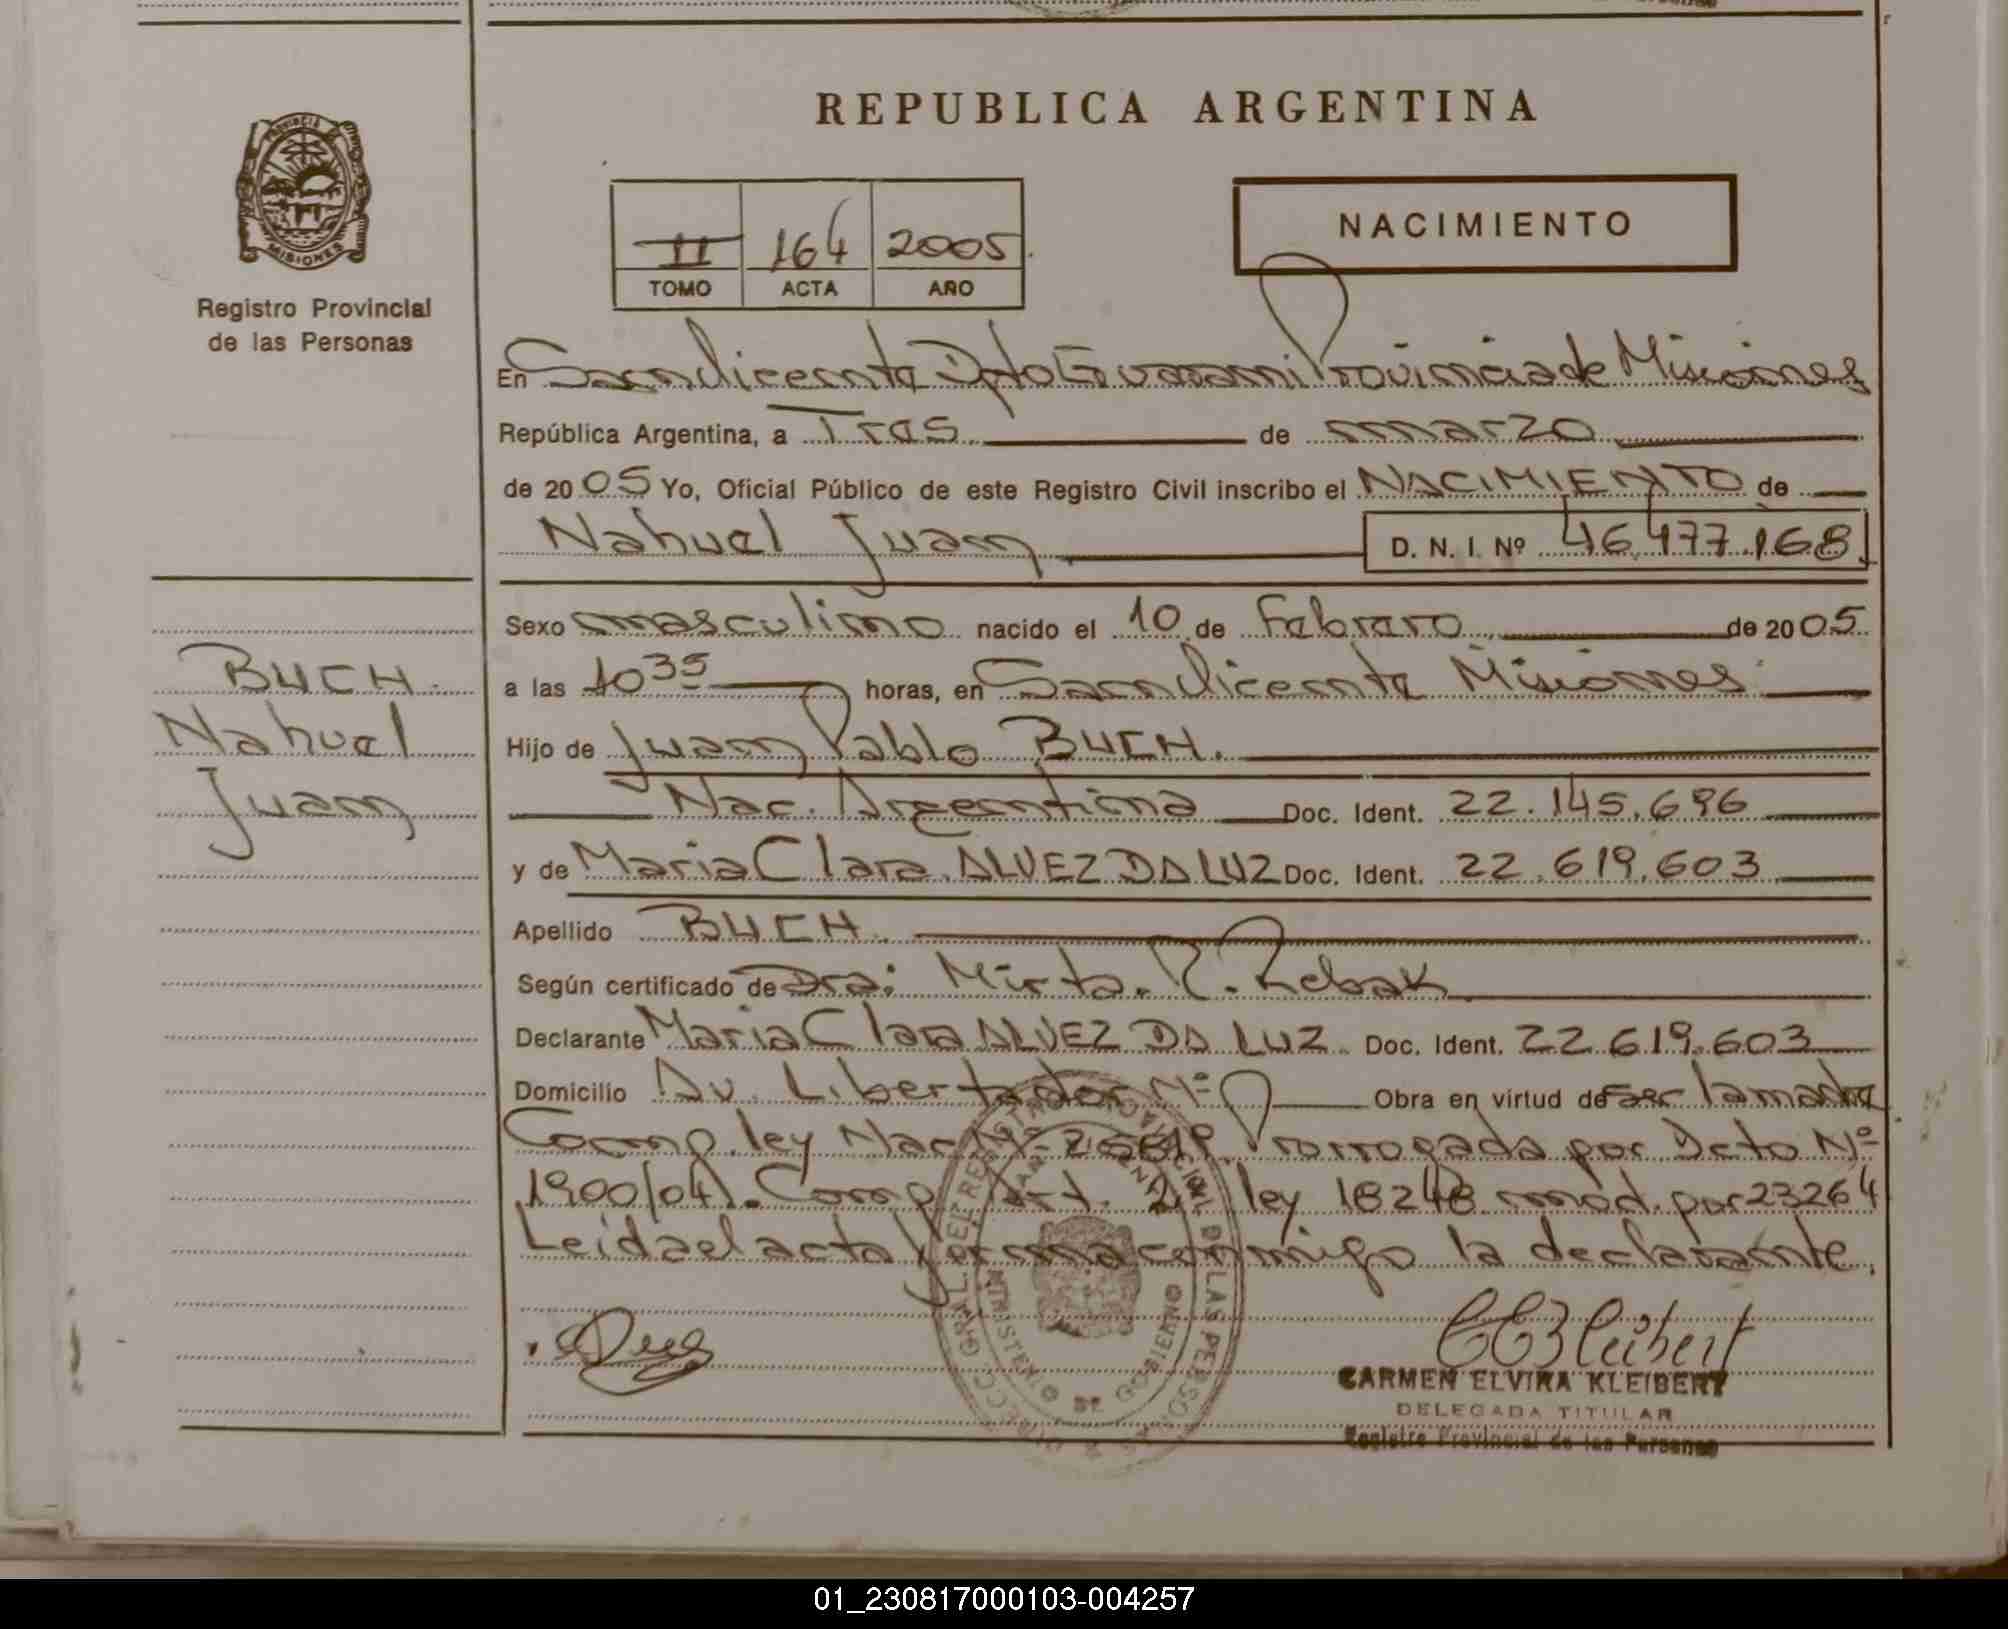 REPUBLICA ARGENTINA
PROVINCIA
MISIONES
Registro Provincial
de las Personas
II 164 2005
TOMO ACTA AÑO
NACIMIENTO
En San Vicente Dpto Guarani Provincia de Misiones
República Argentina, a Tres de marzo
de 2005 Yo, Oficial Público de este Registro Civil inscribo el NACIMIENTO de
Nahuel Juan D. N. I. Nº 46.477.168
Sexo masculino nacido el 10 de Febrero de 2005
a las 10 35 horas, en San Vicente Misiones
Hijo de Juan Pablo BUCH.
Nac. Argentina Doc. Ident. 22.145.696
y de Maria Clara ALVEZ DA LUZ Doc. Ident. 22.619.603
Apellido BUCH.
Según certificado de Dra: Mirta. R. Rebak
Declarante Maria Clara ALVEZ DA LUZ. Doc. Ident. 22.619.603
Domicilio Av. Libertador Nº Obra en virtud de ser la madre
Comp. ley Nac Nº Prorrogada por Dcto Nº
1900/04). Comp. Art. 2 ley 18248 mod. por 23264
Leida el acta firma conmigo la declarante.
BUCH.
Nahuel
Juan
CEKleibert
CARMEN ELVIRA KLEIBERT
DELEGADA TITULAR
Registro Provincial de las Personas
MINISTERIO DE GOBIERNO
01_230817000103-004257